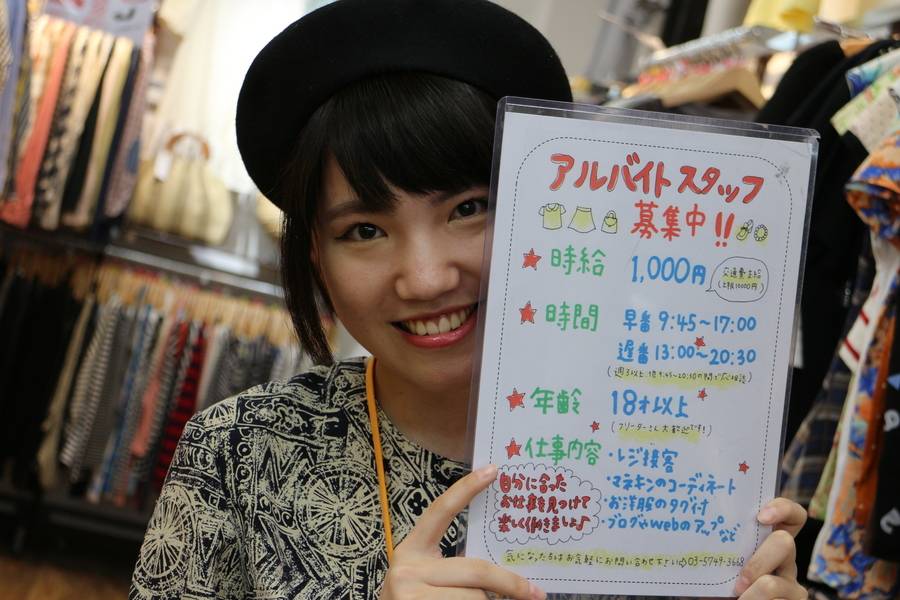 アルバイトスタッフ
募集中!!
時給 1,000円
交通費支給
(上限10000円)
時間 早番 9:45〜17:00
遅番 13:00〜20:30
(週3以上 他9:45〜20:30の間で応相談)
年齢 18才以上
(フリーターさん大歓迎です!)
仕事内容 ・レジ接客
・マネキンのコーディネート
・お洋服のタグ付
・ブログやwebのアップなど
自分に合った
お仕事を見つけて
楽しく働きましょ♪
気になった方はお気軽にお問い合わせ下さい⇨03-5749-3668